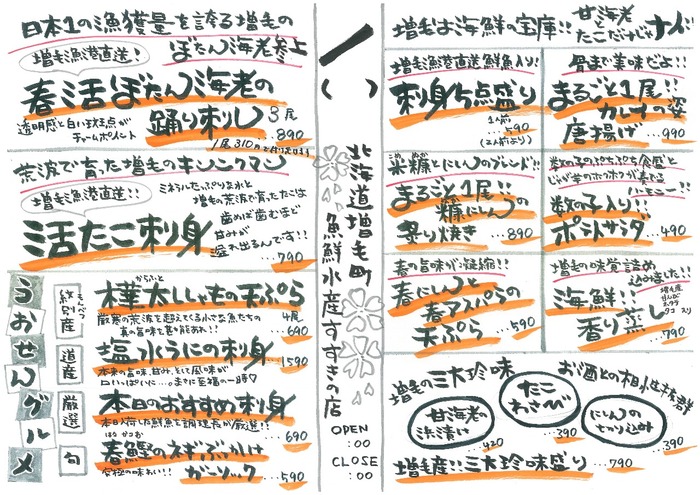 日本1の漁獲量を誇る増毛の
ぼたん海老参上
増毛漁港直送!
春活ぼたん海老の
踊り刺し 3尾
透明感と白い斑点が
チャームポイント
...890
1尾310円で承ります
荒波で育った増毛のキレンクマン
増毛漁港直送!!
ミネラルたっぷりな
増毛の荒波で育ったたこは
歯めば歯むほど
甘みが
溢れ出るんです!!
活たこ刺身
...790
うおせんグルメ
紋別産
もんべつ
からふと
樺太ししゃもの天ぷら
4尾
厳寒の荒波を超えてくる小さな魚たちの
真の旨味を堪能あれ!!
...690
道産
塩水うにの刺身
...1590
本来の旨味、甘み、そして風味が
口いっぱいに...まさに至福の一時♡
厳選
本日のおすすめ刺身
本日入荷した鮮魚を調理長が厳選!!
...690
旬
はるかつお
春鰹のネギぶっかけ
ガーリック
究極の味わい!!
...590
一
( )
北海道増毛町
魚鮮水産すすきの店
OPEN
:00
CLOSE
:00
増毛は海鮮の宝庫!!
甘海老
と
たこだけじゃ
ナイ!
増毛漁港直送鮮魚入り!
刺身5点盛り
1人前
...590
(2人前より)
骨まで美味だよ!!
まるごと1尾!!
カレイの姿
唐揚げ
...990
米糠とにしんのブレンド!!
まるごと1尾!!
糠にしんの
炙り焼き
...890
数の子のぷちぷち食感と
じゃが芋のホクホクが奏でる
ハーモニー!!
数の子入り!!
ポテトサラダ
...490
春の旨味が凝縮!!
春にしんと
春アスパラの
天ぷら
...590
増毛の味覚詰め
込みました!!
海鮮!!
香り菜し
...790
増毛の三大珍味
お酒との相性抜群
甘海老の
浜漬け
...420
たこ
わさび
...390
にしんの
切り込み
...390
増毛産!!三大珍味盛り
...790